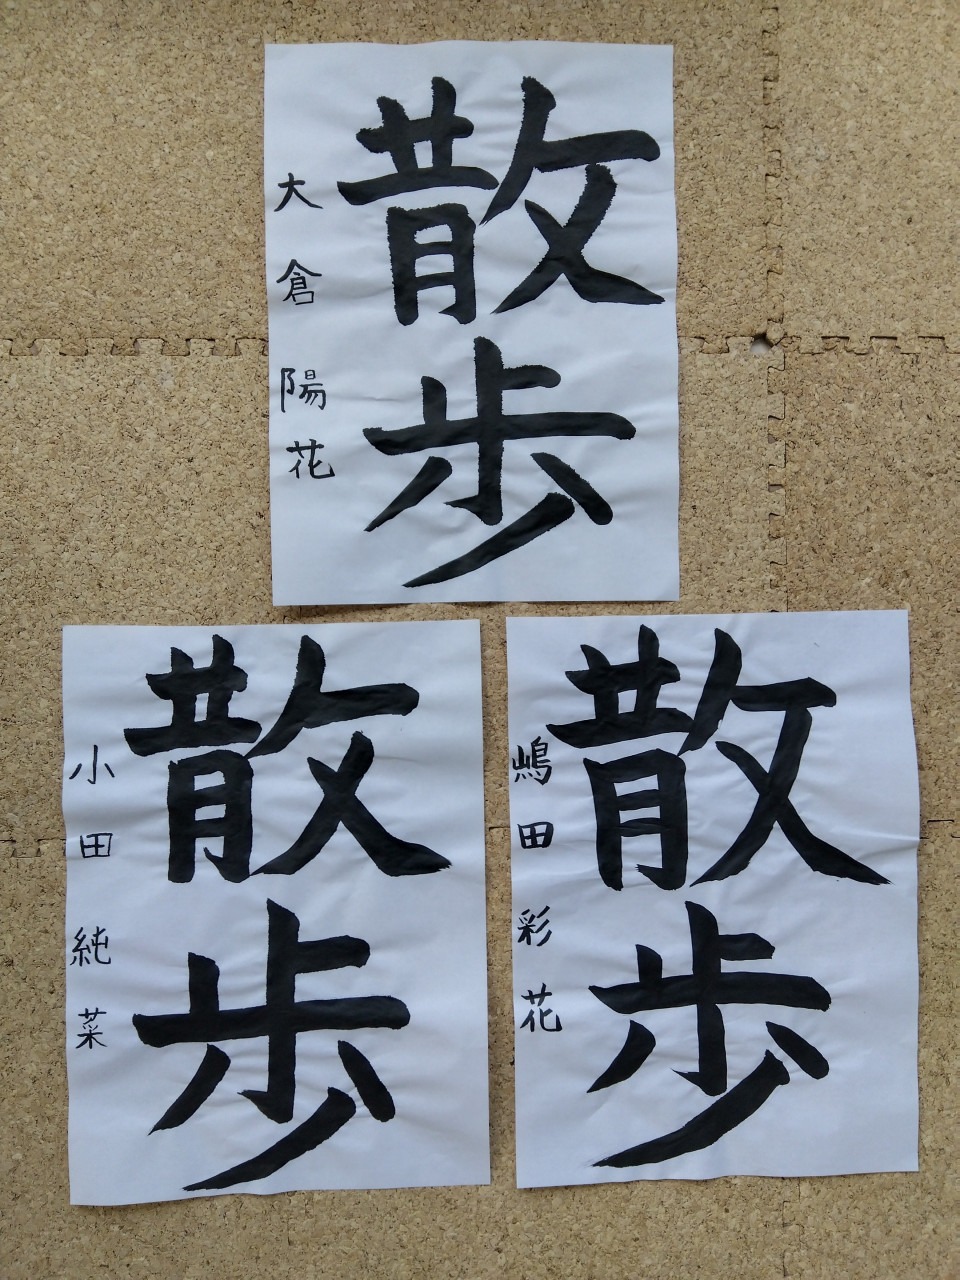 散歩
大倉陽花
散歩
小田純菜
散歩
嶋田彩花